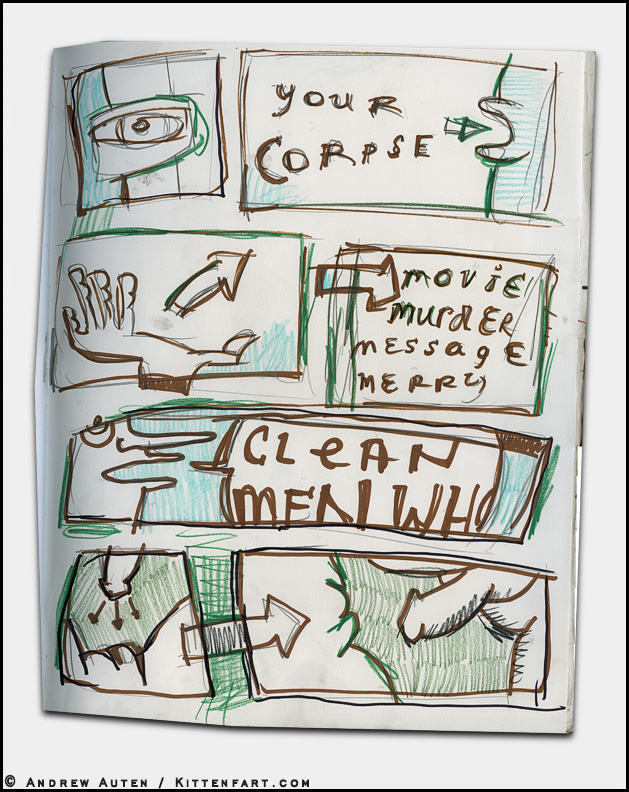 YOUR
CORPSE
MOVIE
MURDER
MESSAGE
MERRY
CLEAN
MEN WHO
© ANDREW AUTEN / KITTENFART.COM